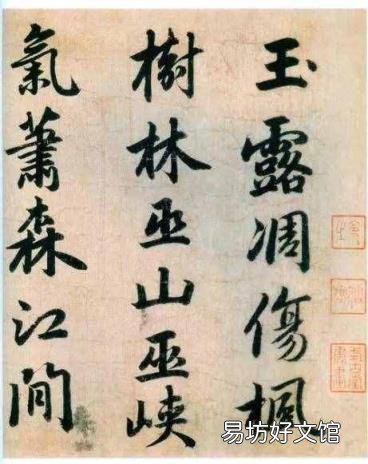 玉露凋傷楓
樹林巫山巫峽
氣蕭森江間
易坊好文馆